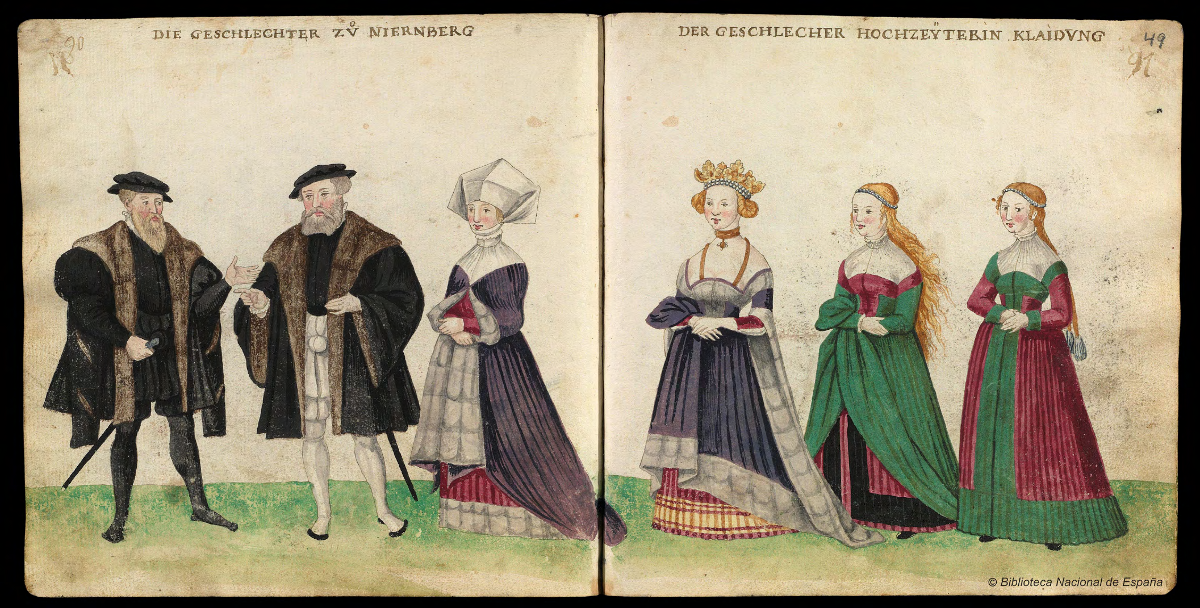 90
DIE GESCHLECHTER ZV̊ NIERNBERG
DER GESCHLECHER HOCHZEŸTERIN KLAIDVNG
49
91
© Biblioteca Nacional de España